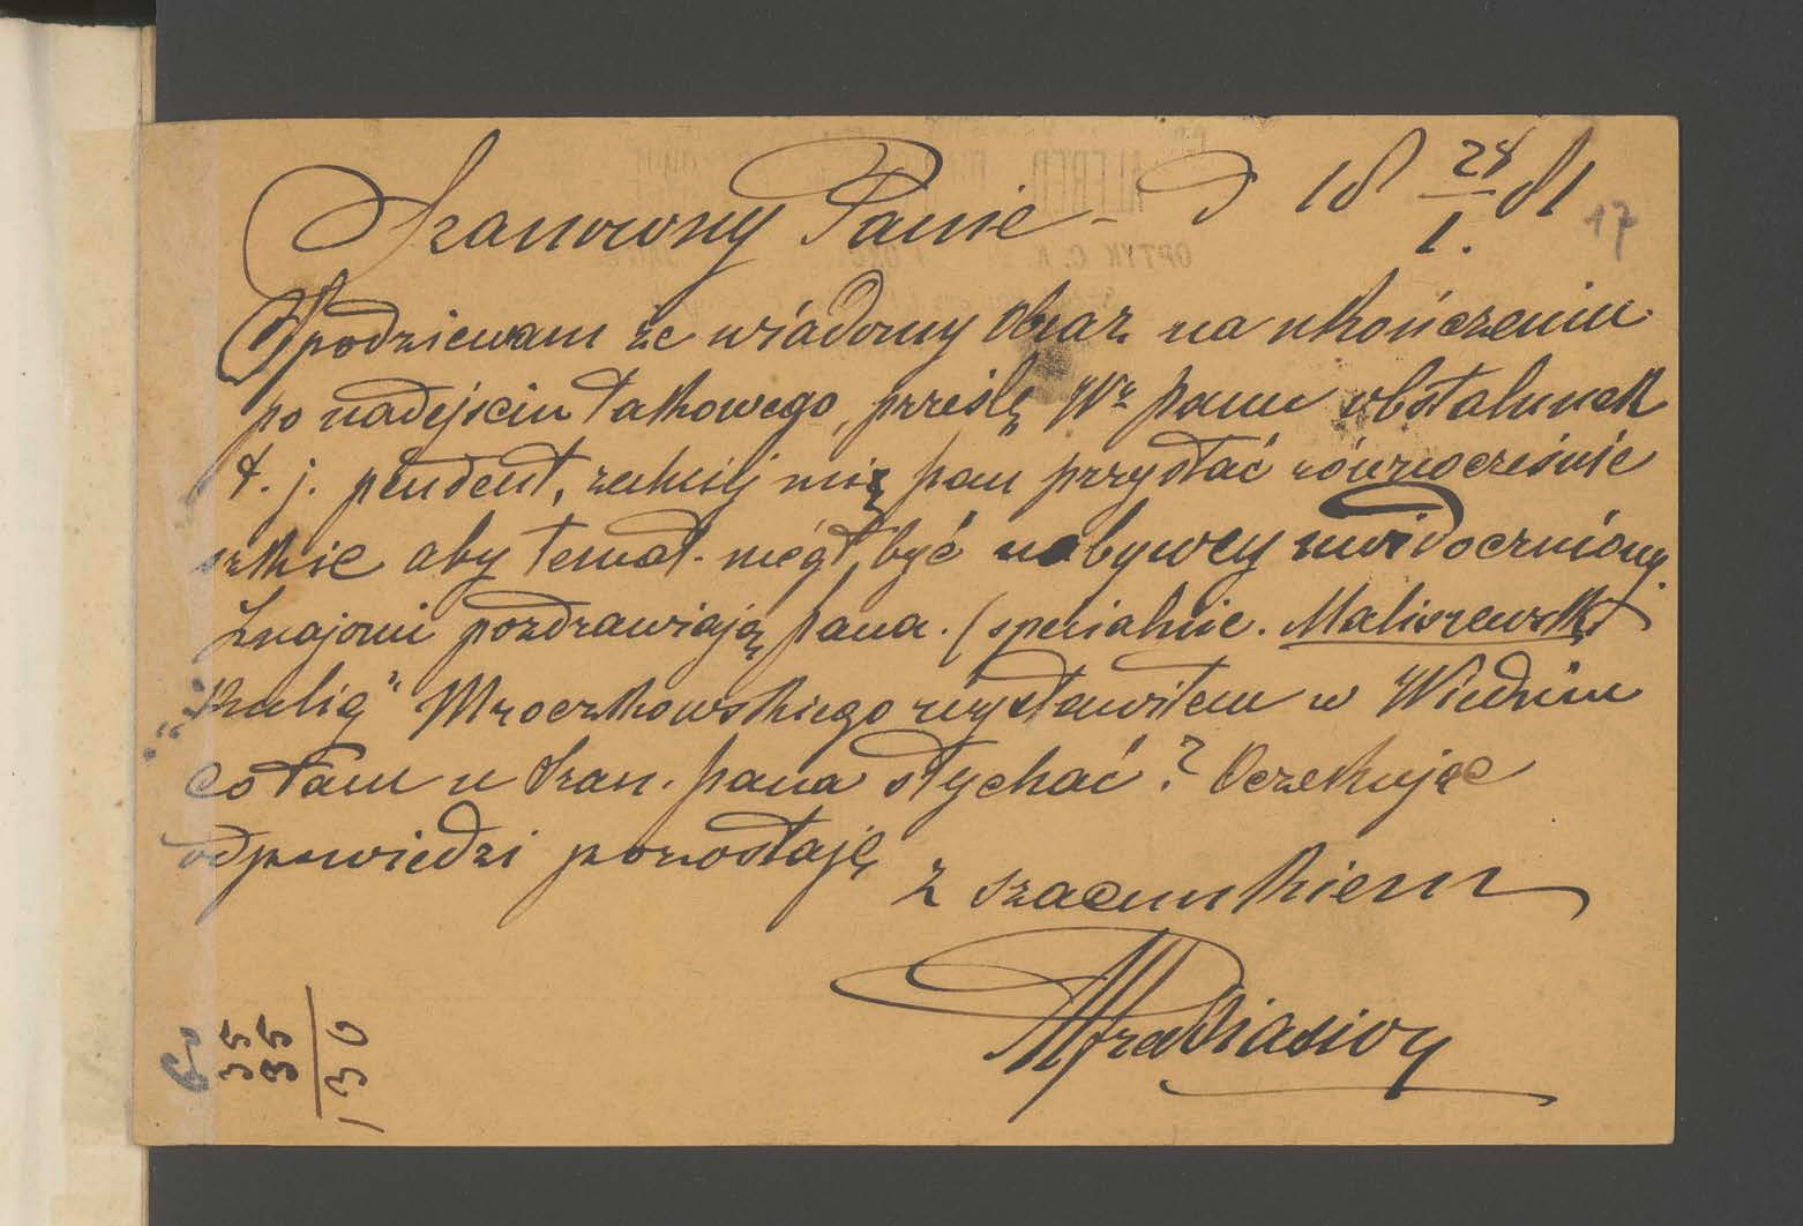 Szanowny Panie - d 18 24/I. 81
17
Spodziewam że wiadomy obraz na ukończeniu
po nadejściu takowego, prześlę Wz panu obstalunek
t. j. pendent, zechciej mię pan przysłać równocześnie
szkic aby temat. mógł być nabywcy uwidoczniony.
Znajomi pozdrawiają pana. (specialnie. Maliszewski
"Kulig" Mroczkowskiego wystawiłem w Wiedniu
co tam u Szan. pana słychać? Oczekując
odpowiedzi pozostaję
z szacunkiem
35
35
130